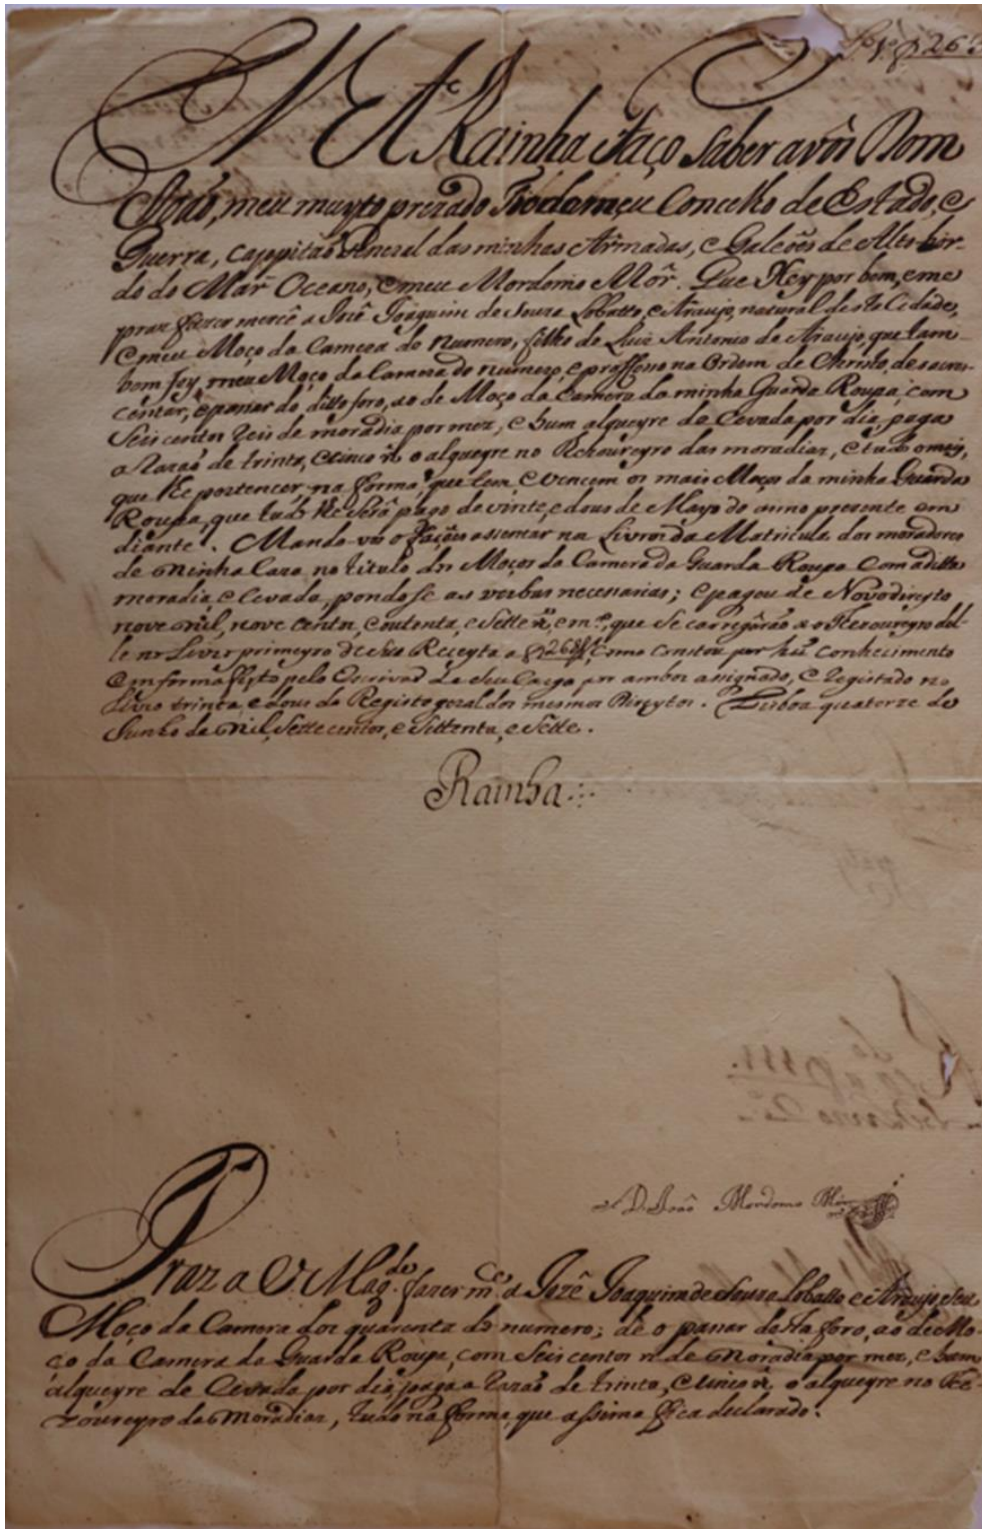 Eu A Rainha Faço saber a vós Dom
João, meu muyto prezado Tio do meu Concelho de Estado, e
Guerra, Cappitão General das minhas Armadas, e Galeões de Alto bor-
do do Mar Oceano, e meu Mordomo Mór. Que Hey por bem, e me
praz fazer mercê a Jozê Joaquim de Souza Lobatto, e Araujo, natural desta Cidade,
e meu Moço da Camera do numero, filho de Luiz Antonio de Araujo, que tam-
bem foy meu Moço da Camera do numero, e professo na Ordem de Christo, de acres-
centar, e passar do ditto foro, ao de Moço da Camera da minha Guarda Roupa, com
Seis centos reis de moradia por mez, e hum alqueyre de Cevada por dia, paga
a Razaõ de trinta, e cinco rs. o alqueyre no Thezoureyro das moradias, e tudo o mais,
que lhe pertencer, na forma, que tem, e vencem os mais Moços da minha Guarda
Roupa, que tudo lhe Será pago de vinte, e dous de Mayo do anno presente em
diante. Mando-vos o façaes assentar no Livro da Matricula dos moradores
de Minha Caza no titulo dos Moços da Camera da Guarda Roupa com a ditta
moradia, e Cevada, pondose as verbas necessarias; e pagou de Novo direyto
nove mil, nove centos, e outenta, e Sette rs., e mº., que se carregárão ao Thezoureyro del-
le no Livro primeyro de Sua Receyta a f 268 vº, como constou por hũ conhecimento
em forma feyto pelo Escrivaõ de Seu Cargo por ambos assignado, e Registado no
Livro trinta, e dous do Registo geral dos mesmos Direytos. Lisboa quatorze de
Junho de Mil, Sette centos, e Settenta, e Sette.
Rainha
D. João Mordomo Mór
Praz a V. Magde. fazer mce. a Jozê Joaquim de Souza Lobatto e Araujo, Seu
Moço da Camera dos quarenta do numero; de o passar deste foro, ao de Mo-
ço da Camera da Guarda Roupa, com Seis centos rs. de Moradia por mez, e hum
alqueyre de Cevada por dia, paga a Razaõ de trinta, e cinco rs. o alqueyre no The-
zoureyro das Moradias, tudo na forma, que assima fica declarado.